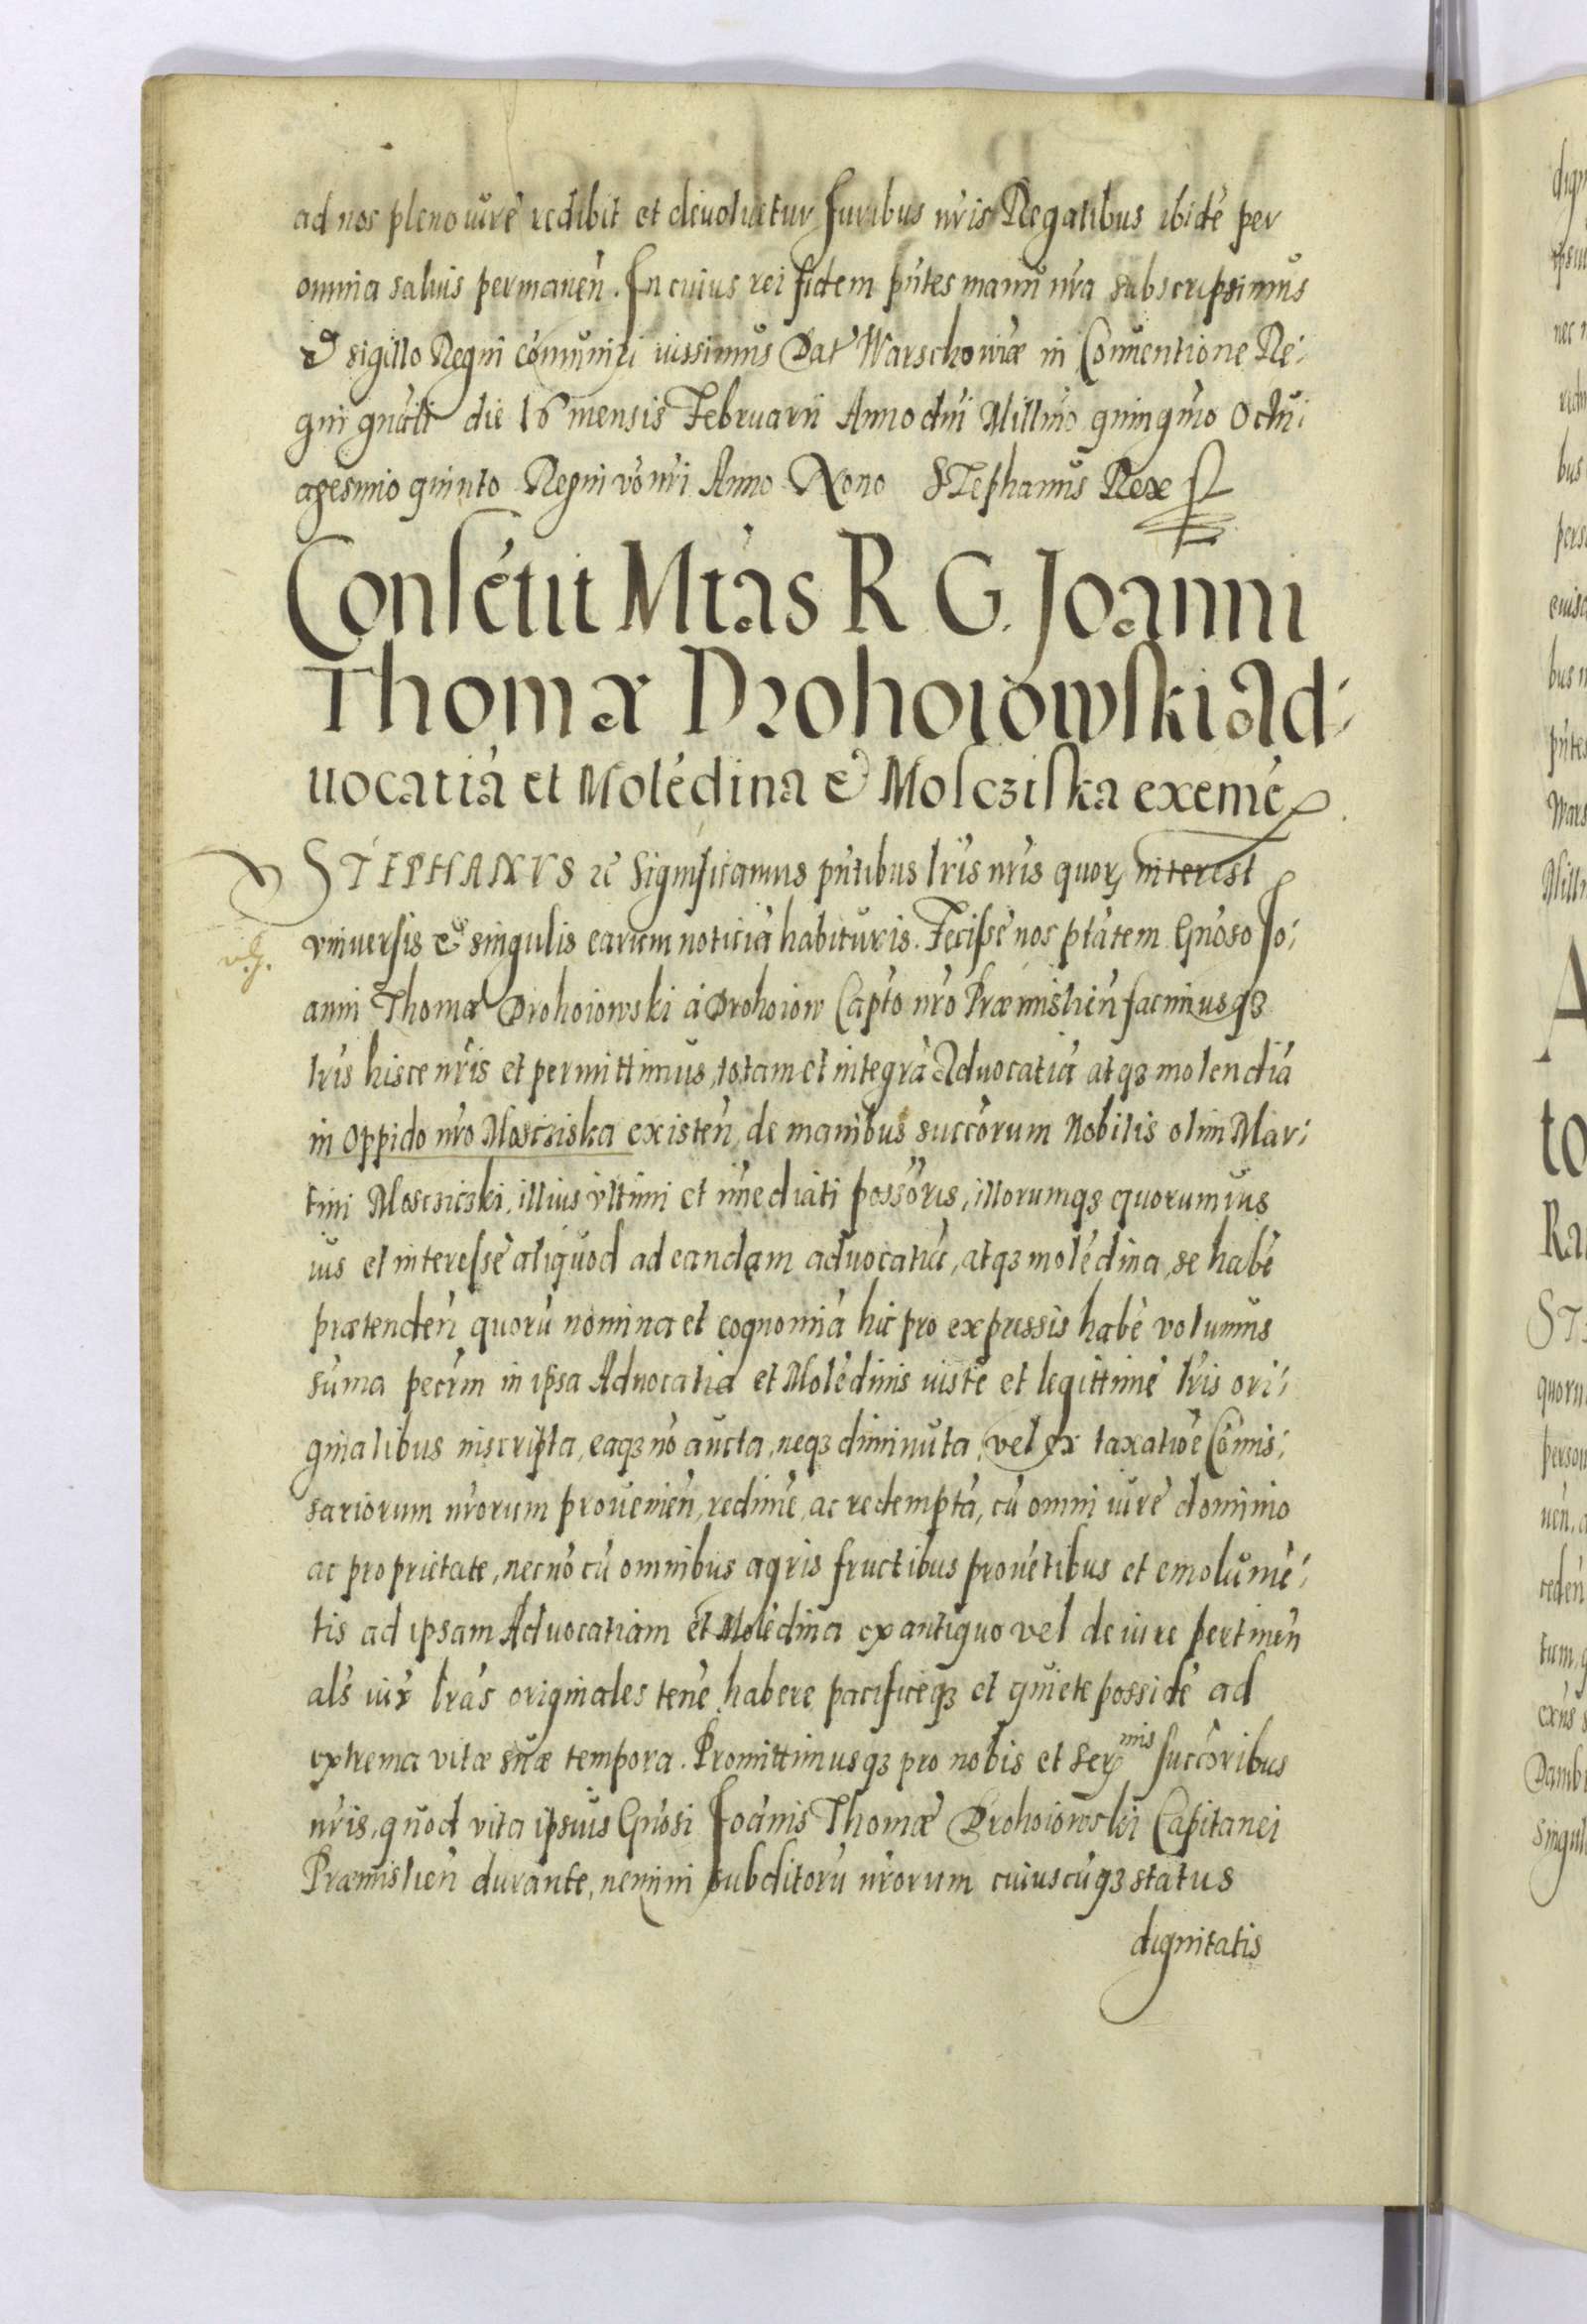 ad nos pleno iure redibit et deuoluetur Iuribus nr̃is Regalibus ibidẽ per
omnia saluis permaneñ. In cuius rei fidem pñtes manũ nr̃a subscripsimus
& sigillo Regni cõmuniri iussimus Dat Warschowiæ in Conuentione Re:
gni gnãli die 16 mensis Februarii Anno dñi Millm̃o quingm̃o Octu:
agesimo quinto Regni vő nr̃i Anno Nono STephanus Rex
Consẽtit Mtãs R G. Joanni
Thomæ Drohoiowski Ad:
uocatiã et Molẽdina & Moscziska eximẽ
STEPHANVS &c Significamus pñtibus lr̃is nr̃is quorũ interest
vniuersis & singulis earum noticiã habituris. Fecisse nos ptãtem Gñoso Jo:
anni Thomæ Drohoiowski à Drohoiow Capto nr̃o Præmislień facimusqꝫ
lr̃is hisce nr̃is et permittimus, totam et integrã Aduocatiã atqꝫ molendiã
in Oppido nr̃o Mosciska existeñ, de manibus succõrum Nobilis olim Mar:
tini Mosczicski, illius vltimi et im̃ediati possõris, illorumqꝫ quorumuis
ius et interesse aliquod ad eandem aduocatiã, atqꝫ molẽdina, se habẽ
prætendeñ quorũ nomina et cognomiã hic pro expressis habẽ volumus
sum̃a pecũm in ipsa Aduocatia et Molẽdinis iustẽ et legittimẽ lr̃is ori:
ginalibus inscripta, eaqꝫ nõ aucta, neqꝫ diminuta, vel ex taxatiõe Cõmis:
sariorum nr̃orum prouenieñ, redimẽ, ac redemptã, cũ omni iure dominio
ac proprietate, necnõ cũ omnibus agris fructibus prouẽtibus et emolumẽ:
tis ad ipsam Aduocatiam et Molẽdina ex antiquo vel de iure pertineñ
als iux̃ lrãs originales tenẽ habere pacificeqꝫ et quiete possidẽ ad
extrema vitæ suæ tempora. Promittimusqꝫ pro nobis et Ser<sup>mis</sup> succõribus
nr̃is, quod vita ipsius Gñosi Joãnis Thomæ Drohoiowski Capitanei
Præmislień durante, nemini subditorũ nr̃orum cuiuscũqꝫ status
dignitatis